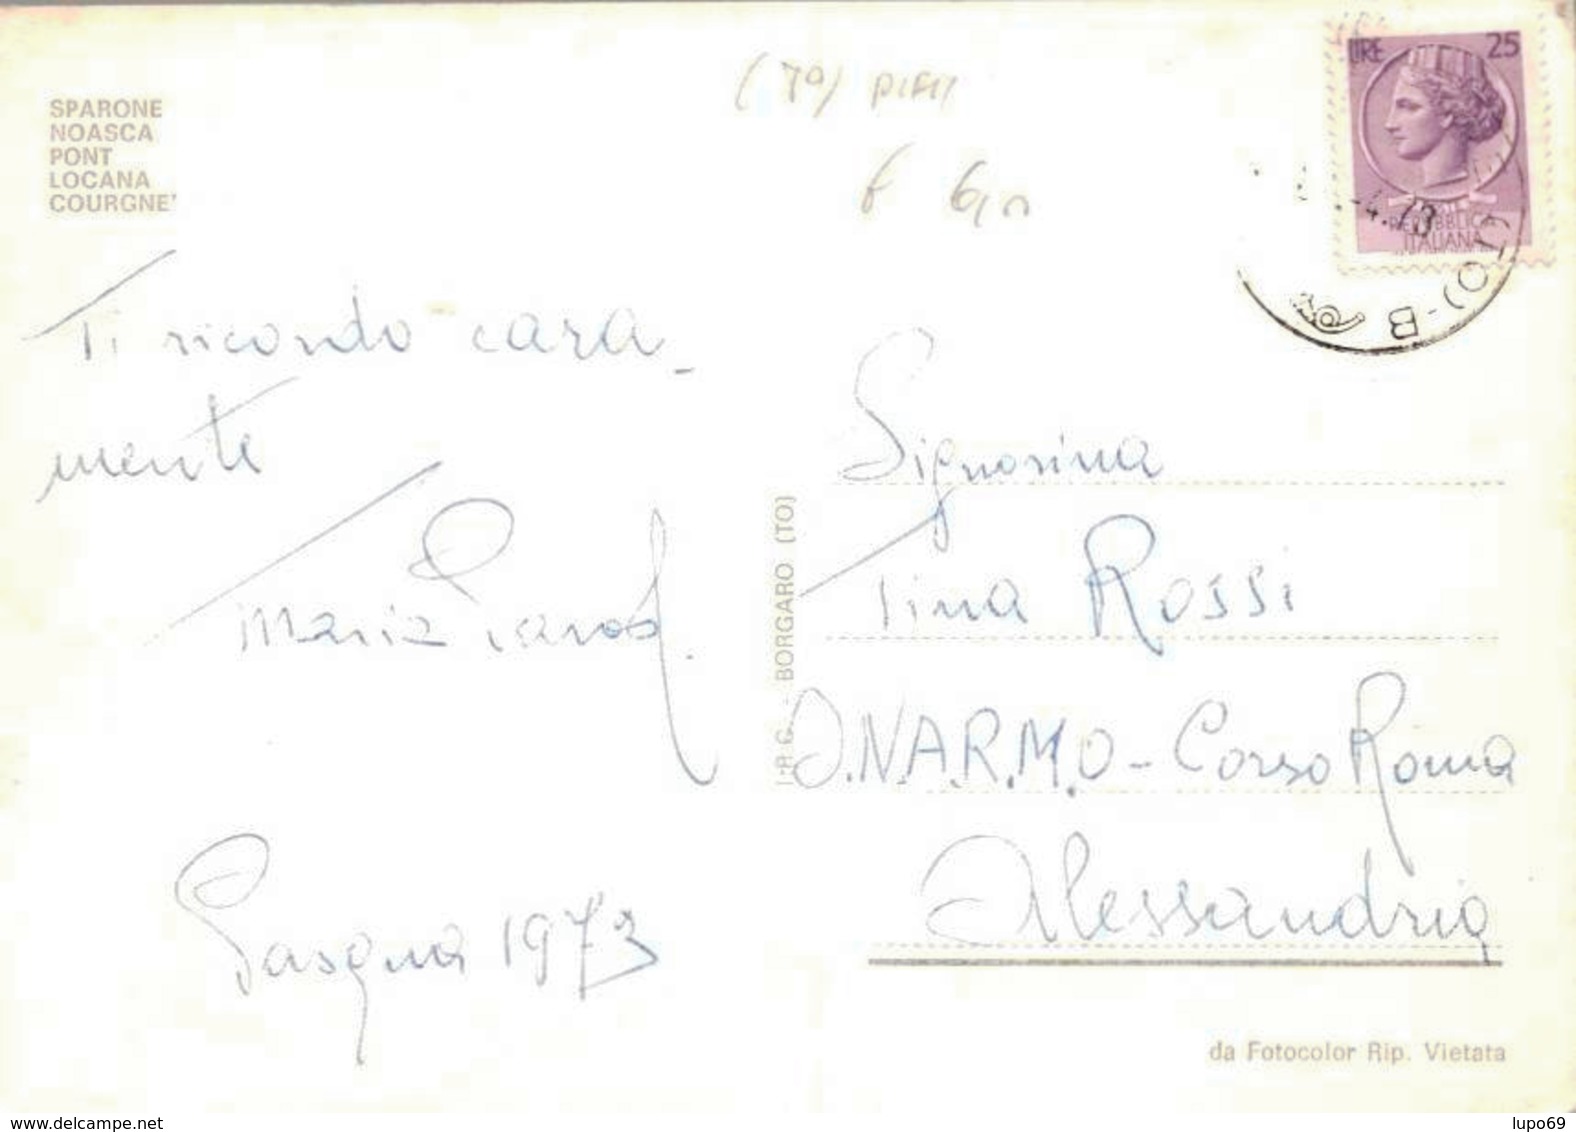 SPARONE
NOASCA
PONT
LOCANA
COURGNE'
(TO)
LIRE 25
REPUBBLICA
ITALIANA
-4.73
TO)-B
Ti ricordo cara-
mente
Maria
Pasqua 1973
BORGARO (TO)
Signorina
Tina Rossi
O.N.A.R.M.O - Corso Roma
Alessandria
da Fotocolor Rip. Vietata
www.delcampe.net
lupo69